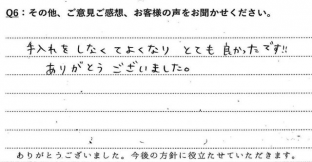 Q6：その他、ご意見ご感想、お客様の声をお聞かせください。
手入れをしなくてよくなり とても 良かったです!!
ありがとう ございました。
ありがとうございました。今後の方針に役立たせていただきます。